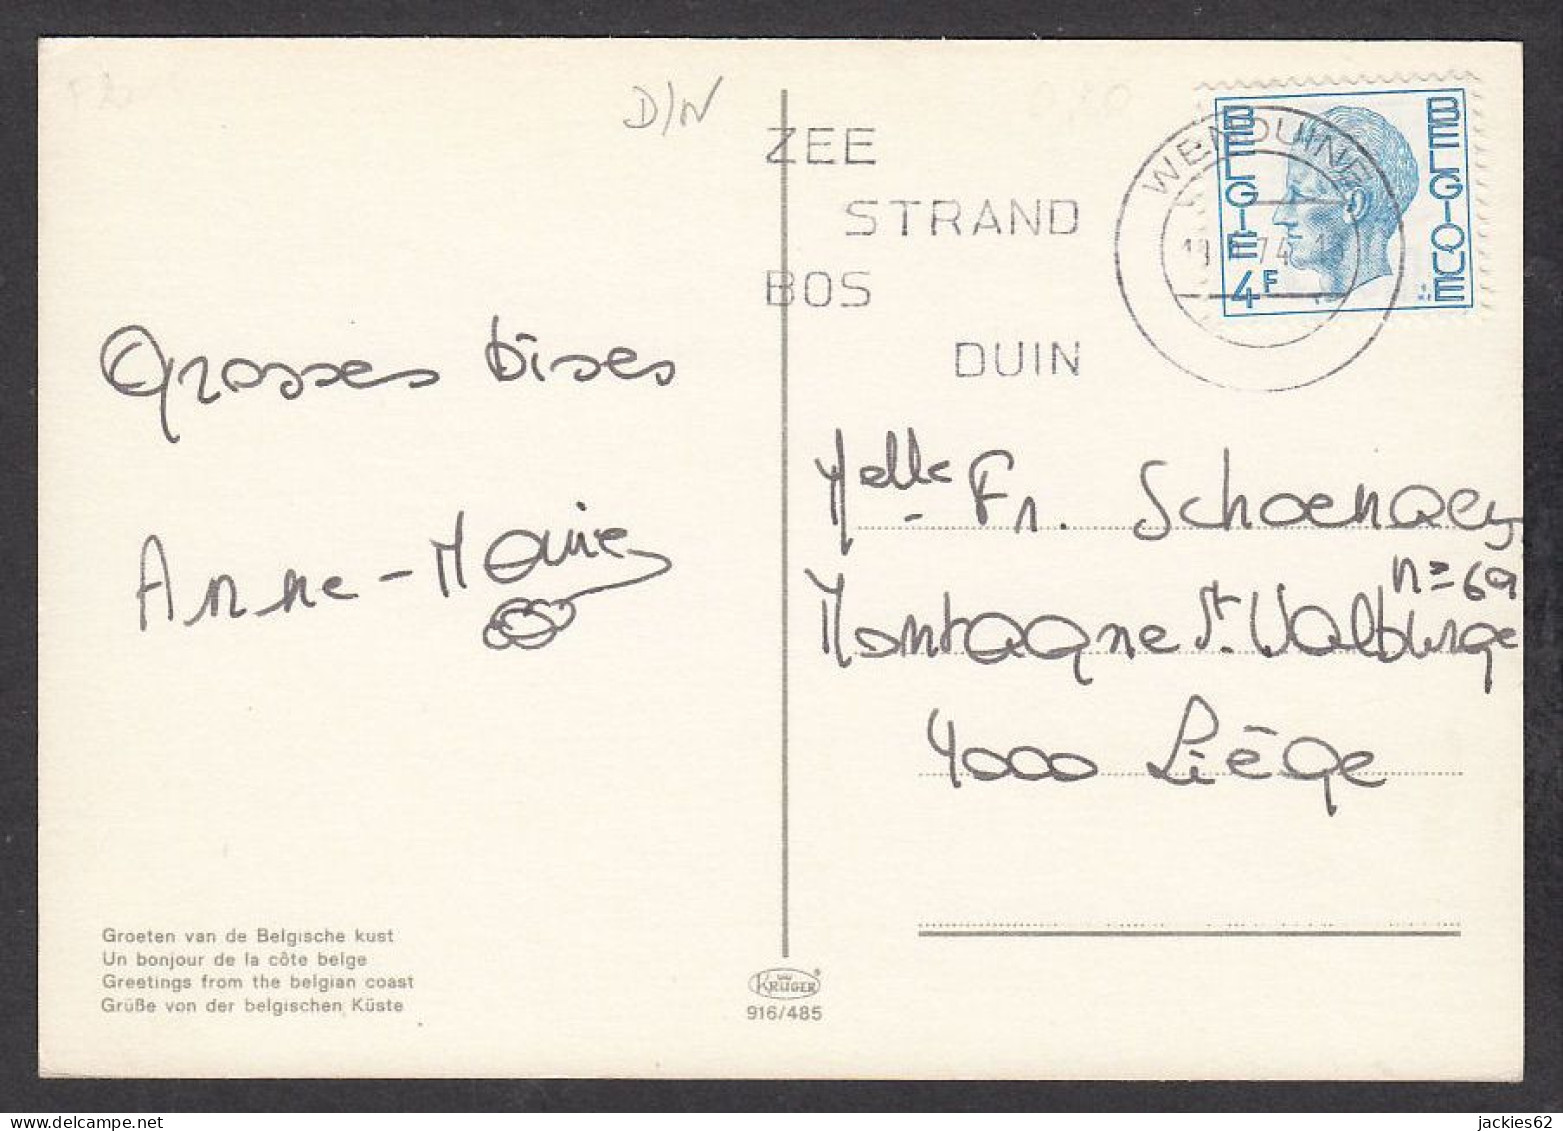 D/N
ZEE
STRAND
BOS
DUIN
WENDUINE
74
BELGIE
BELGIQUE
4F
Grosses bises
Anne-Marie
Melle Fr. Schoenaers
n= 69
Montagne St. Walburge
4000 Liège
Groeten van de Belgische kust
Un bonjour de la côte belge
Greetings from the belgian coast
Grüße von der belgischen Küste
KRÜGER
916/485
jackies62